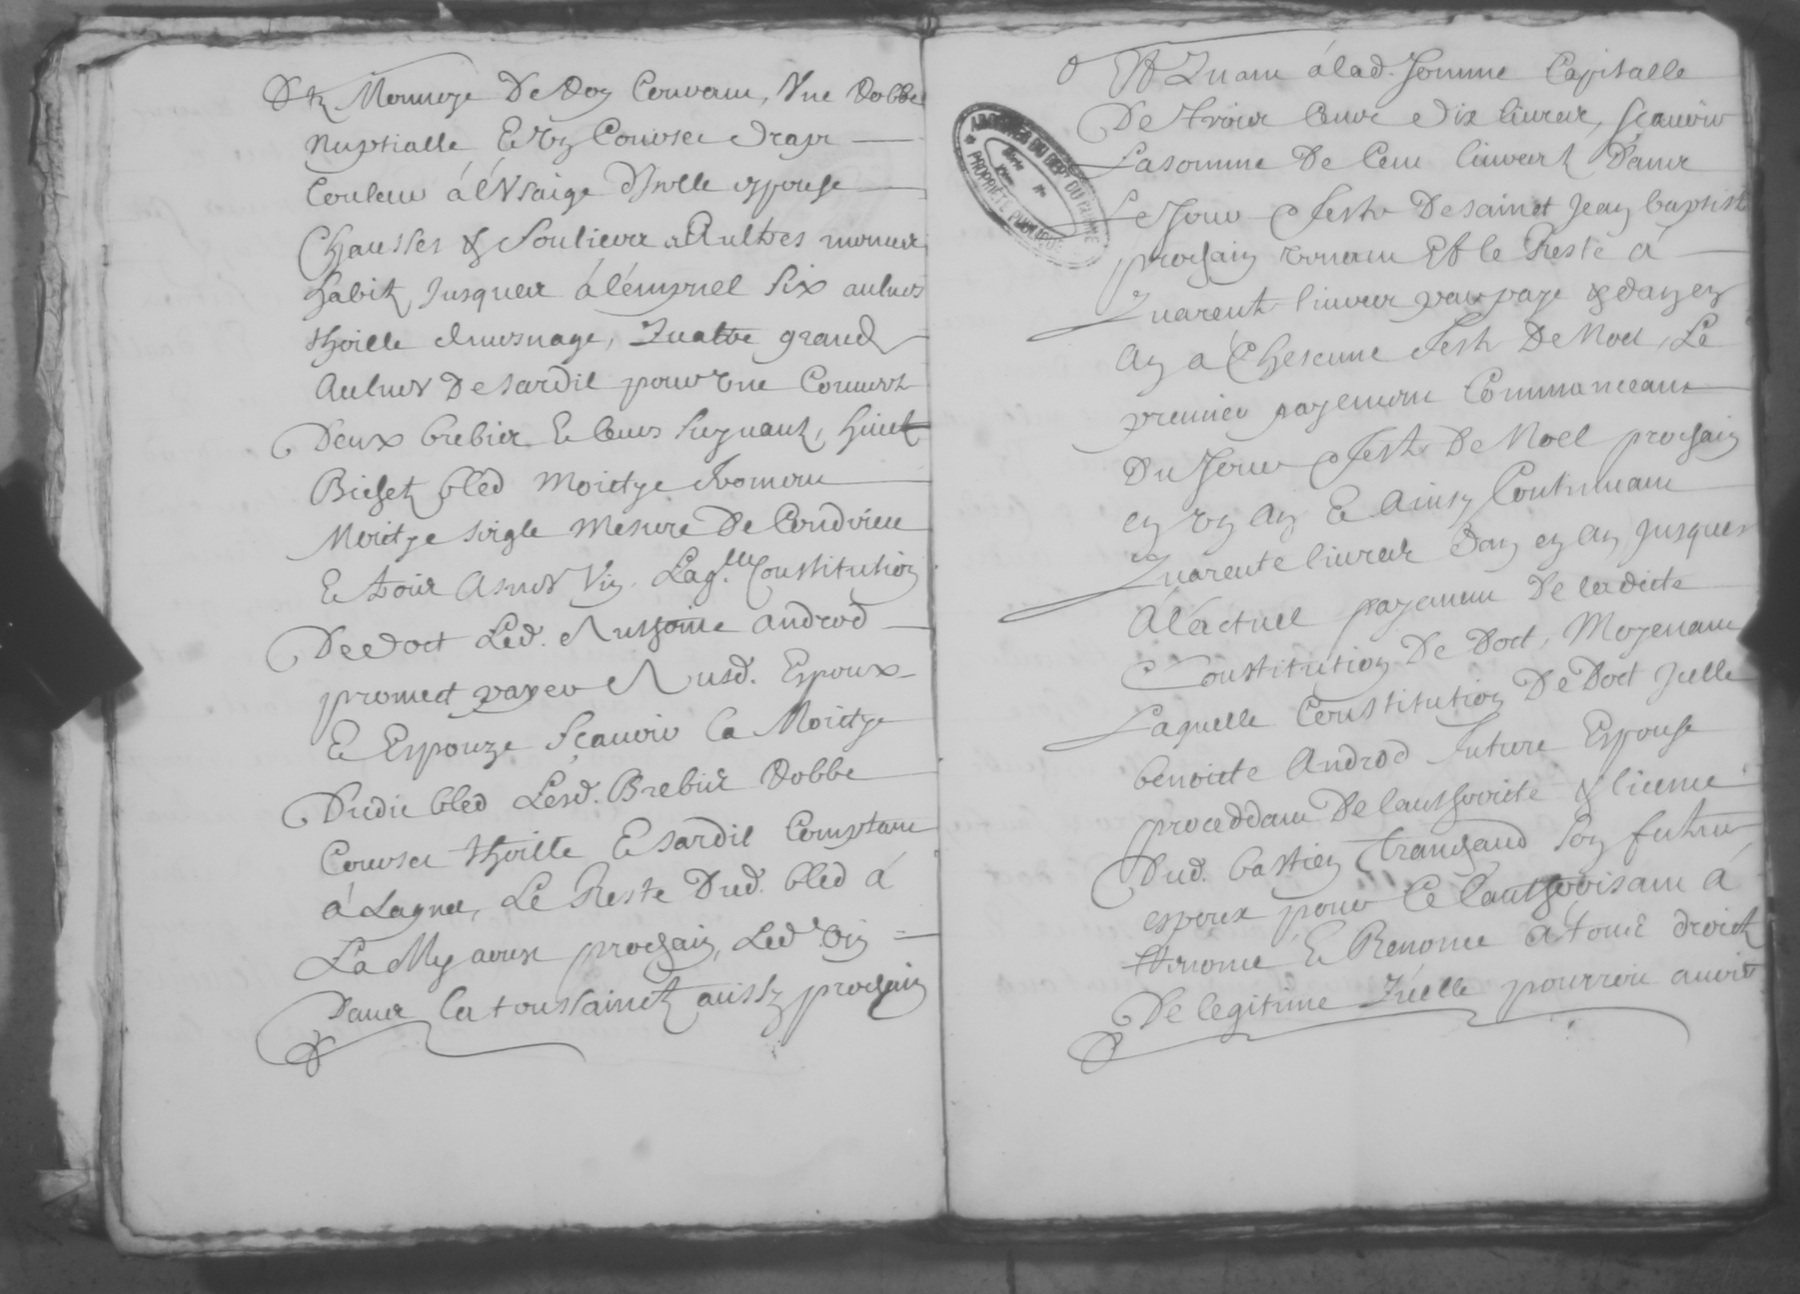 Et Monnoye De Roy Couvam, Vne Robbe
Nuptialle E Vn Couvrsec drapt
Couleur á l'Vsaige d'Icelle espouse
Chausses & Soulierer aAultres menues
habitz Jusquer á l'émmel Six aulnes
thoille dumesnage, Quattre grandz
Aulnes De sardil pour Vne Couverte
Deux brebier E leurs suyvantz, huict
Bichetz bled Moictye fromem
Moictye seigle mesure De Condrieu
E troix Asnes Vin. Laq.lle Constitution
De doct Led. Anthoine androd
promect payer Ausd. Espoux
E Espouze sçauoir la Moictye
Dudic bled Lesd. Brebier Robbe
Couvrsec thoille E sardil Comptam
á Lagneu, Le Reste Dud. bled á
La My aoust prochain, Led.t Vin
Dans la toussainctz aussy prochain
Et Quam álad. somme Capitalle
De troix Cens dix livres, sçauoir
La somme De Cem livres Dans
Le Jour & feste De sainct Jean baptiste
prochain Venam Et le Reste á
Quarente livres par paye & dan en
An á Chescune feste De Noel, Le
premier payemem Commanceam
Du Jour & feste De Noel prochain
en Vn An E Ainsy Continuam
Quarente livrer Dan en An Jusquer
Al'actuel payemem De ladicte
Constitution De Doct, Moyenam
Laquelle Constitution De Doct Icelle
benoicte Androd future Espouse
proceddam De l'authorité & licence
Dud. bastien son futur
espoux pour Ce l'authorisam á
E Renonce á tous droictz
De legitime Qu'elle pourroit auoir
ARCHIVES DU DEPT DU RHONE
PROPRIÉTÉ PUBLIQUE